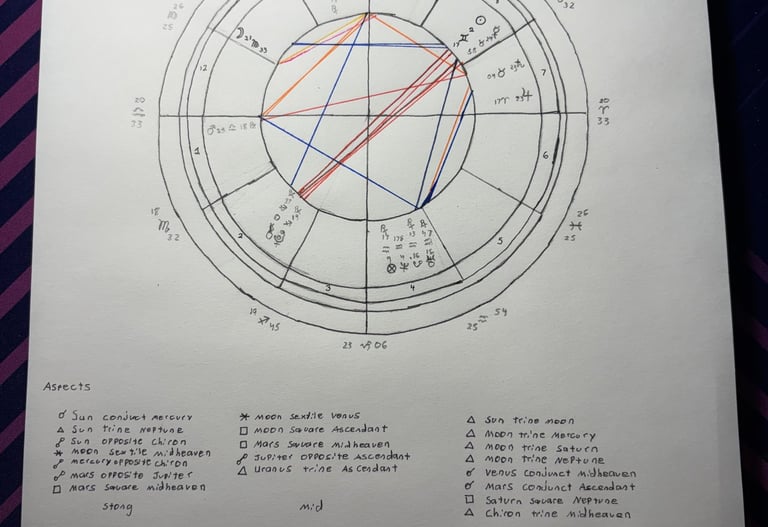 26
♍
25
32
☽ 21 ♍ 33
12
2 ☉
17 ♊
7
17 ♈ 23 ♃
20
♎
33
20
♈
33
1
6
18
♏
32
26
♓
25
2
5
3
4
19 ♐ 45
25 ♒ 54
23 ♑ 06
Aspects
☌ Sun conduct mercury
△ Sun trine Neptune
☍ Sun opposite chiron
⚹ moon sextile midheaven
☍ mercury opposite chiron
☍ mars opposite Jupiter
□ Mars square midheaven
stong
⚹ moon sextile Venus
□ moon Square Ascendant
□ Mars Square midheaven
☍ Jupiter opposite Ascendant
△ Uranus trine Ascendant
mid
△ Sun trine moon
△ Moon trine Mercury
△ moon trine Saturn
△ moon trine Neptune
☌ Venus conduct Midheaven
☌ Mars conduct Ascendant
□ Saturn square Neptune
△ Chiron trine midheaven